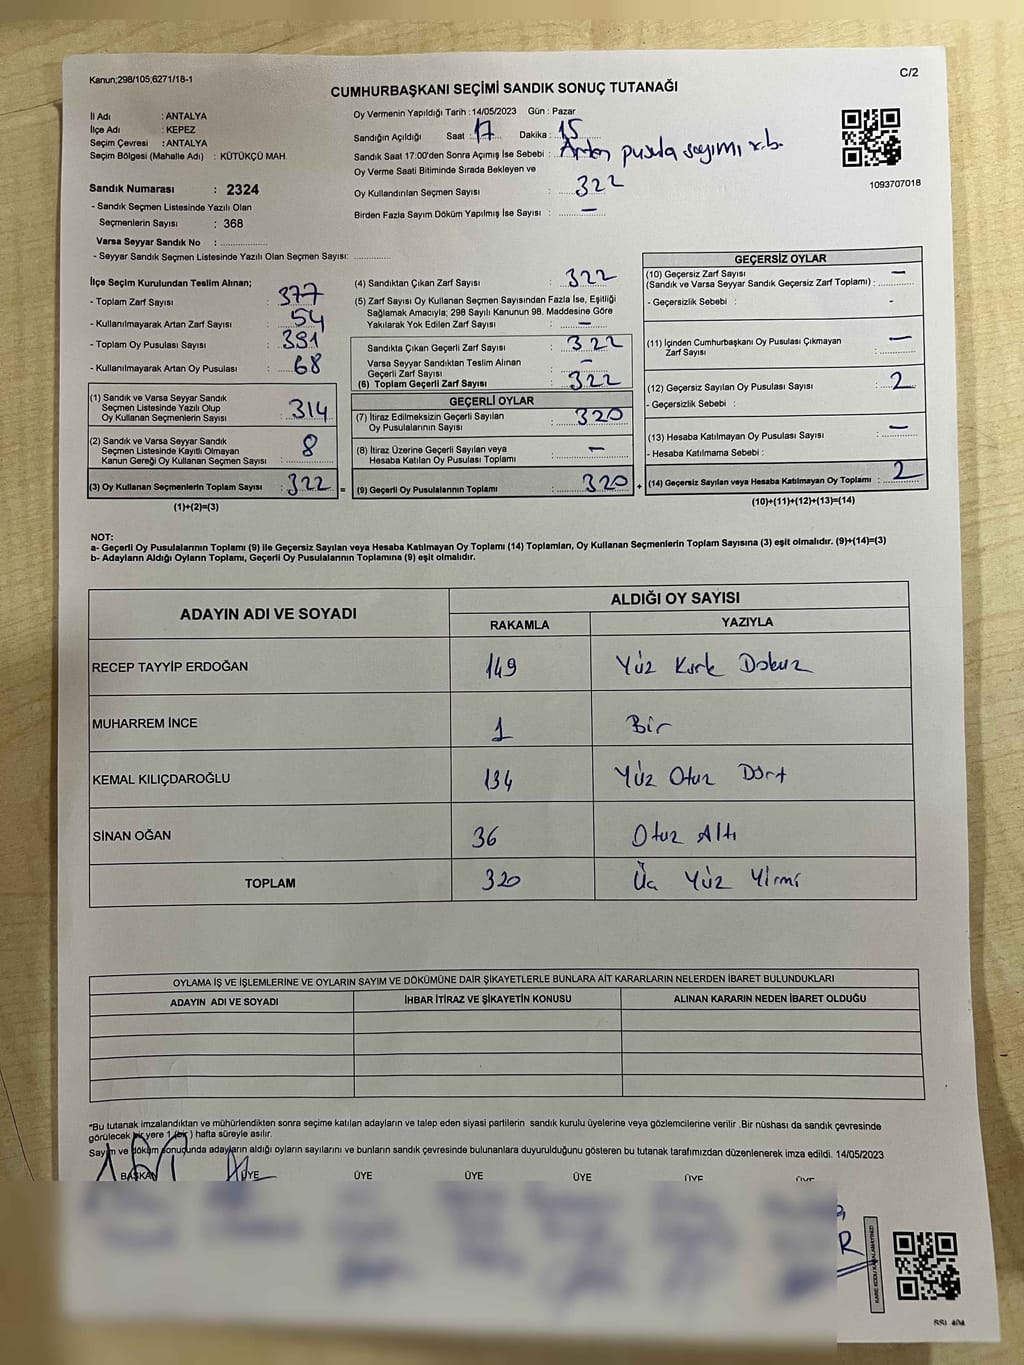 Kanun;298/105;6271/18-1
C/2
CUMHURBAŞKANI SEÇİMİ SANDIK SONUÇ TUTANAĞI
İl Adı : ANTALYA
İlçe Adı : KEPEZ
Seçim Çevresi : ANTALYA
Seçim Bölgesi (Mahalle Adı) : KÜTÜKÇÜ MAH.
Sandık Numarası : 2324
- Sandık Seçmen Listesinde Yazılı Olan
Seçmenlerin Sayısı : 368
Varsa Seyyar Sandık No :
- Seyyar Sandık Seçmen Listesinde Yazılı Olan Seçmen Sayısı:
Oy Vermenin Yapıldığı Tarih : 14/05/2023 Gün : Pazar
Sandığın Açıldığı Saat : 17 Dakika : 15
Sandık Saat 17:00'den Sonra Açımış İse Sebebi : Artan pusula sayımı v.b.
Oy Verme Saati Bitiminde Sırada Bekleyen ve
Oy Kullandırılan Seçmen Sayısı : 322
Birden Fazla Sayım Döküm Yapılmış İse Sayısı : —
1093707018
İlçe Seçim Kurulundan Teslim Alınan;
- Toplam Zarf Sayısı : 377
- Kullanılmayarak Artan Zarf Sayısı : 54
- Toplam Oy Pusulası Sayısı : 391
- Kullanılmayarak Artan Oy Pusulası : 68
(1) Sandık ve Varsa Seyyar Sandık
Seçmen Listesinde Yazılı Olup
Oy Kullanan Seçmenlerin Sayısı : 314
(2) Sandık ve Varsa Seyyar Sandık
Seçmen Listesinde Kayıtlı Olmayan
Kanun Gereği Oy Kullanan Seçmen Sayısı : 8
(3) Oy Kullanan Seçmenlerin Toplam Sayısı : 322 =
(1)+(2)=(3)
(4) Sandıktan Çıkan Zarf Sayısı : 322
(5) Zarf Sayısı Oy Kullanan Seçmen Sayısından Fazla İse, Eşitliği
Sağlamak Amacıyla; 298 Sayılı Kanunun 98. Maddesine Göre
Yakılarak Yok Edilen Zarf Sayısı : —
Sandıkta Çıkan Geçerli Zarf Sayısı : 322
Varsa Seyyar Sandıktan Teslim Alınan
Geçerli Zarf Sayısı : —
(6) Toplam Geçerli Zarf Sayısı : 322
GEÇERLİ OYLAR
(7) İtiraz Edilmeksizin Geçerli Sayılan
Oy Pusulalarının Sayısı : 320
(8) İtiraz Üzerine Geçerli Sayılan veya
Hesaba Katılan Oy Pusulası Toplamı : —
(9) Geçerli Oy Pusulalarının Toplamı : 320 +
GEÇERSİZ OYLAR
(10) Geçersiz Zarf Sayısı
(Sandık ve Varsa Seyyar Sandık Geçersiz Zarf Toplamı) : —
- Geçersizlik Sebebi : -
(11) İçinden Cumhurbaşkanı Oy Pusulası Çıkmayan
Zarf Sayısı : —
(12) Geçersiz Sayılan Oy Pusulası Sayısı : 2
- Geçersizlik Sebebi :
(13) Hesaba Katılmayan Oy Pusulası Sayısı : —
- Hesaba Katılmama Sebebi :
(14) Geçersiz Sayılan veya Hesaba Katılmayan Oy Toplamı : 2
(10)+(11)+(12)+(13)=(14)
NOT:
a- Geçerli Oy Pusulalarının Toplamı (9) ile Geçersiz Sayılan veya Hesaba Katılmayan Oy Toplamı (14) Toplamları, Oy Kullanan Seçmenlerin Toplam Sayısına (3) eşit olmalıdır. (9)+(14)=(3)
b- Adayların Aldığı Oyların Toplamı, Geçerli Oy Pusulalarının Toplamına (9) eşit olmalıdır.
ADAYIN ADI VE SOYADI ALDIĞI OY SAYISI
RAKAMLA YAZIYLA
RECEP TAYYİP ERDOĞAN 149 Yüz Kırk Dokuz
MUHARREM İNCE 1 Bir
KEMAL KILIÇDAROĞLU 134 Yüz Otuz Dört
SİNAN OĞAN 36 Otuz Altı
TOPLAM 320 Üç Yüz Yirmi
OYLAMA İŞ VE İŞLEMLERİNE VE OYLARIN SAYIM VE DÖKÜMÜNE DAİR ŞİKAYETLERLE BUNLARA AİT KARARLARIN NELERDEN İBARET BULUNDUKLARI
ADAYIN ADI VE SOYADI İHBAR İTİRAZ VE ŞİKAYETİN KONUSU ALINAN KARARIN NEDEN İBARET OLDUĞU
*Bu tutanak imzalandıktan ve mühürlendikten sonra seçime katılan adayların ve talep eden siyasi partilerin sandık kurulu üyelerine veya gözlemcilerine verilir .Bir nüshası da sandık çevresinde
görülecek bir yere 1 (bir ) hafta süreyle asılır.
Sayım ve döküm sonucunda adayların aldığı oyların sayılarını ve bunların sandık çevresinde bulunanlara duyurulduğunu gösteren bu tutanak tarafımızdan düzenlenerek imza edildi. 14/05/2023
BAŞKAN ÜYE ÜYE ÜYE ÜYE ÜYE ÜYE
KARE KODU KARALAMAYINIZ!